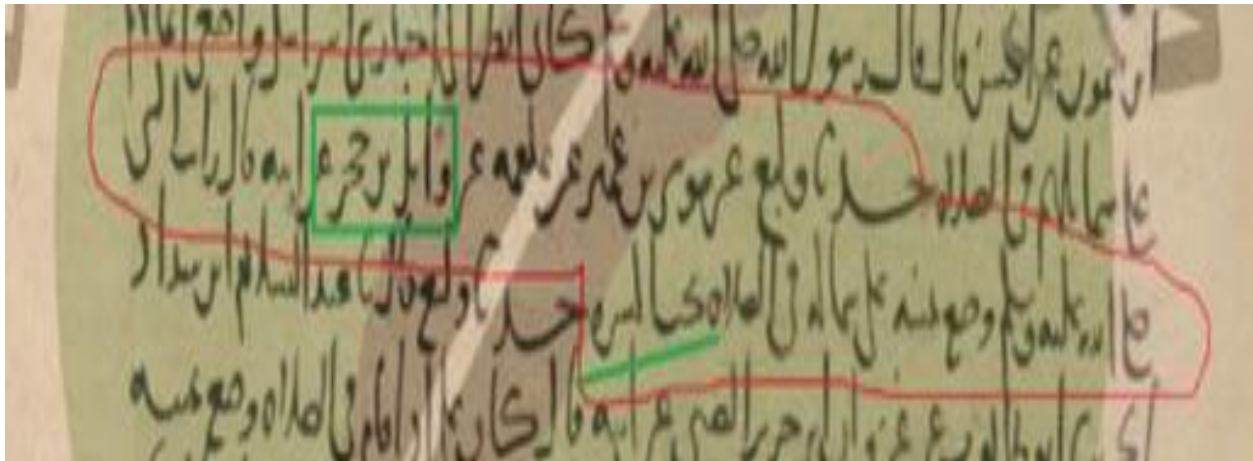 ابن ميمون عن الحسن قال قال رسول الله صلى الله عليه وسلم كاني انظر الى احبار بني اسرايل واضعي ايمانهم
على شمايلهم في الصلاه حدثنا وكيع عن موسى بن عمير عن علقمه عن وايل بن حجر عن ابيه قال رايت النبي
صلى الله عليه وسلم وضع يمينه على شماله في الصلاه تحت السره حدثنا وكيع قال ثنا عبد السلام ابن شداد
ابو طالوت عن غزوان بن جرير الضبي عن ابيه قال كان علي اذا قام في الصلاه وضع يمينه